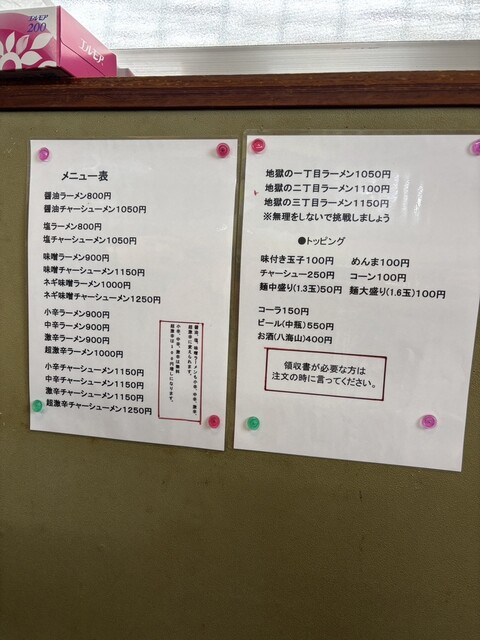 エルモア
200
エルモア
メニュー表
醤油ラーメン800円
醤油チャーシューメン1050円
塩ラーメン800円
塩チャーシューメン1050円
味噌ラーメン900円
味噌チャーシューメン1150円
ネギ味噌ラーメン1000円
ネギ味噌チャーシューメン1250円
小辛ラーメン900円
中辛ラーメン900円
激辛ラーメン900円
超激辛ラーメン1000円
小辛チャーシューメン1150円
中辛チャーシューメン1150円
激辛チャーシューメン1150円
超激辛チャーシューメン1250円
醤油、塩、味噌ラーメンも小辛、中辛、激辛、
超激辛に変えられます。
小辛、中辛、激辛は無料
超激辛は100円増しになります。
地獄の一丁目ラーメン1050円
地獄の二丁目ラーメン1100円
地獄の三丁目ラーメン1150円
※無理をしないで挑戦しましょう
●トッピング
味付き玉子100円 めんま100円
チャーシュー250円 コーン100円
麺中盛り(1.3玉)50円 麺大盛り(1.6玉)100円
コーラ150円
ビール(中瓶)550円
お酒(八海山)400円
領収書が必要な方は
注文の時に言ってください。